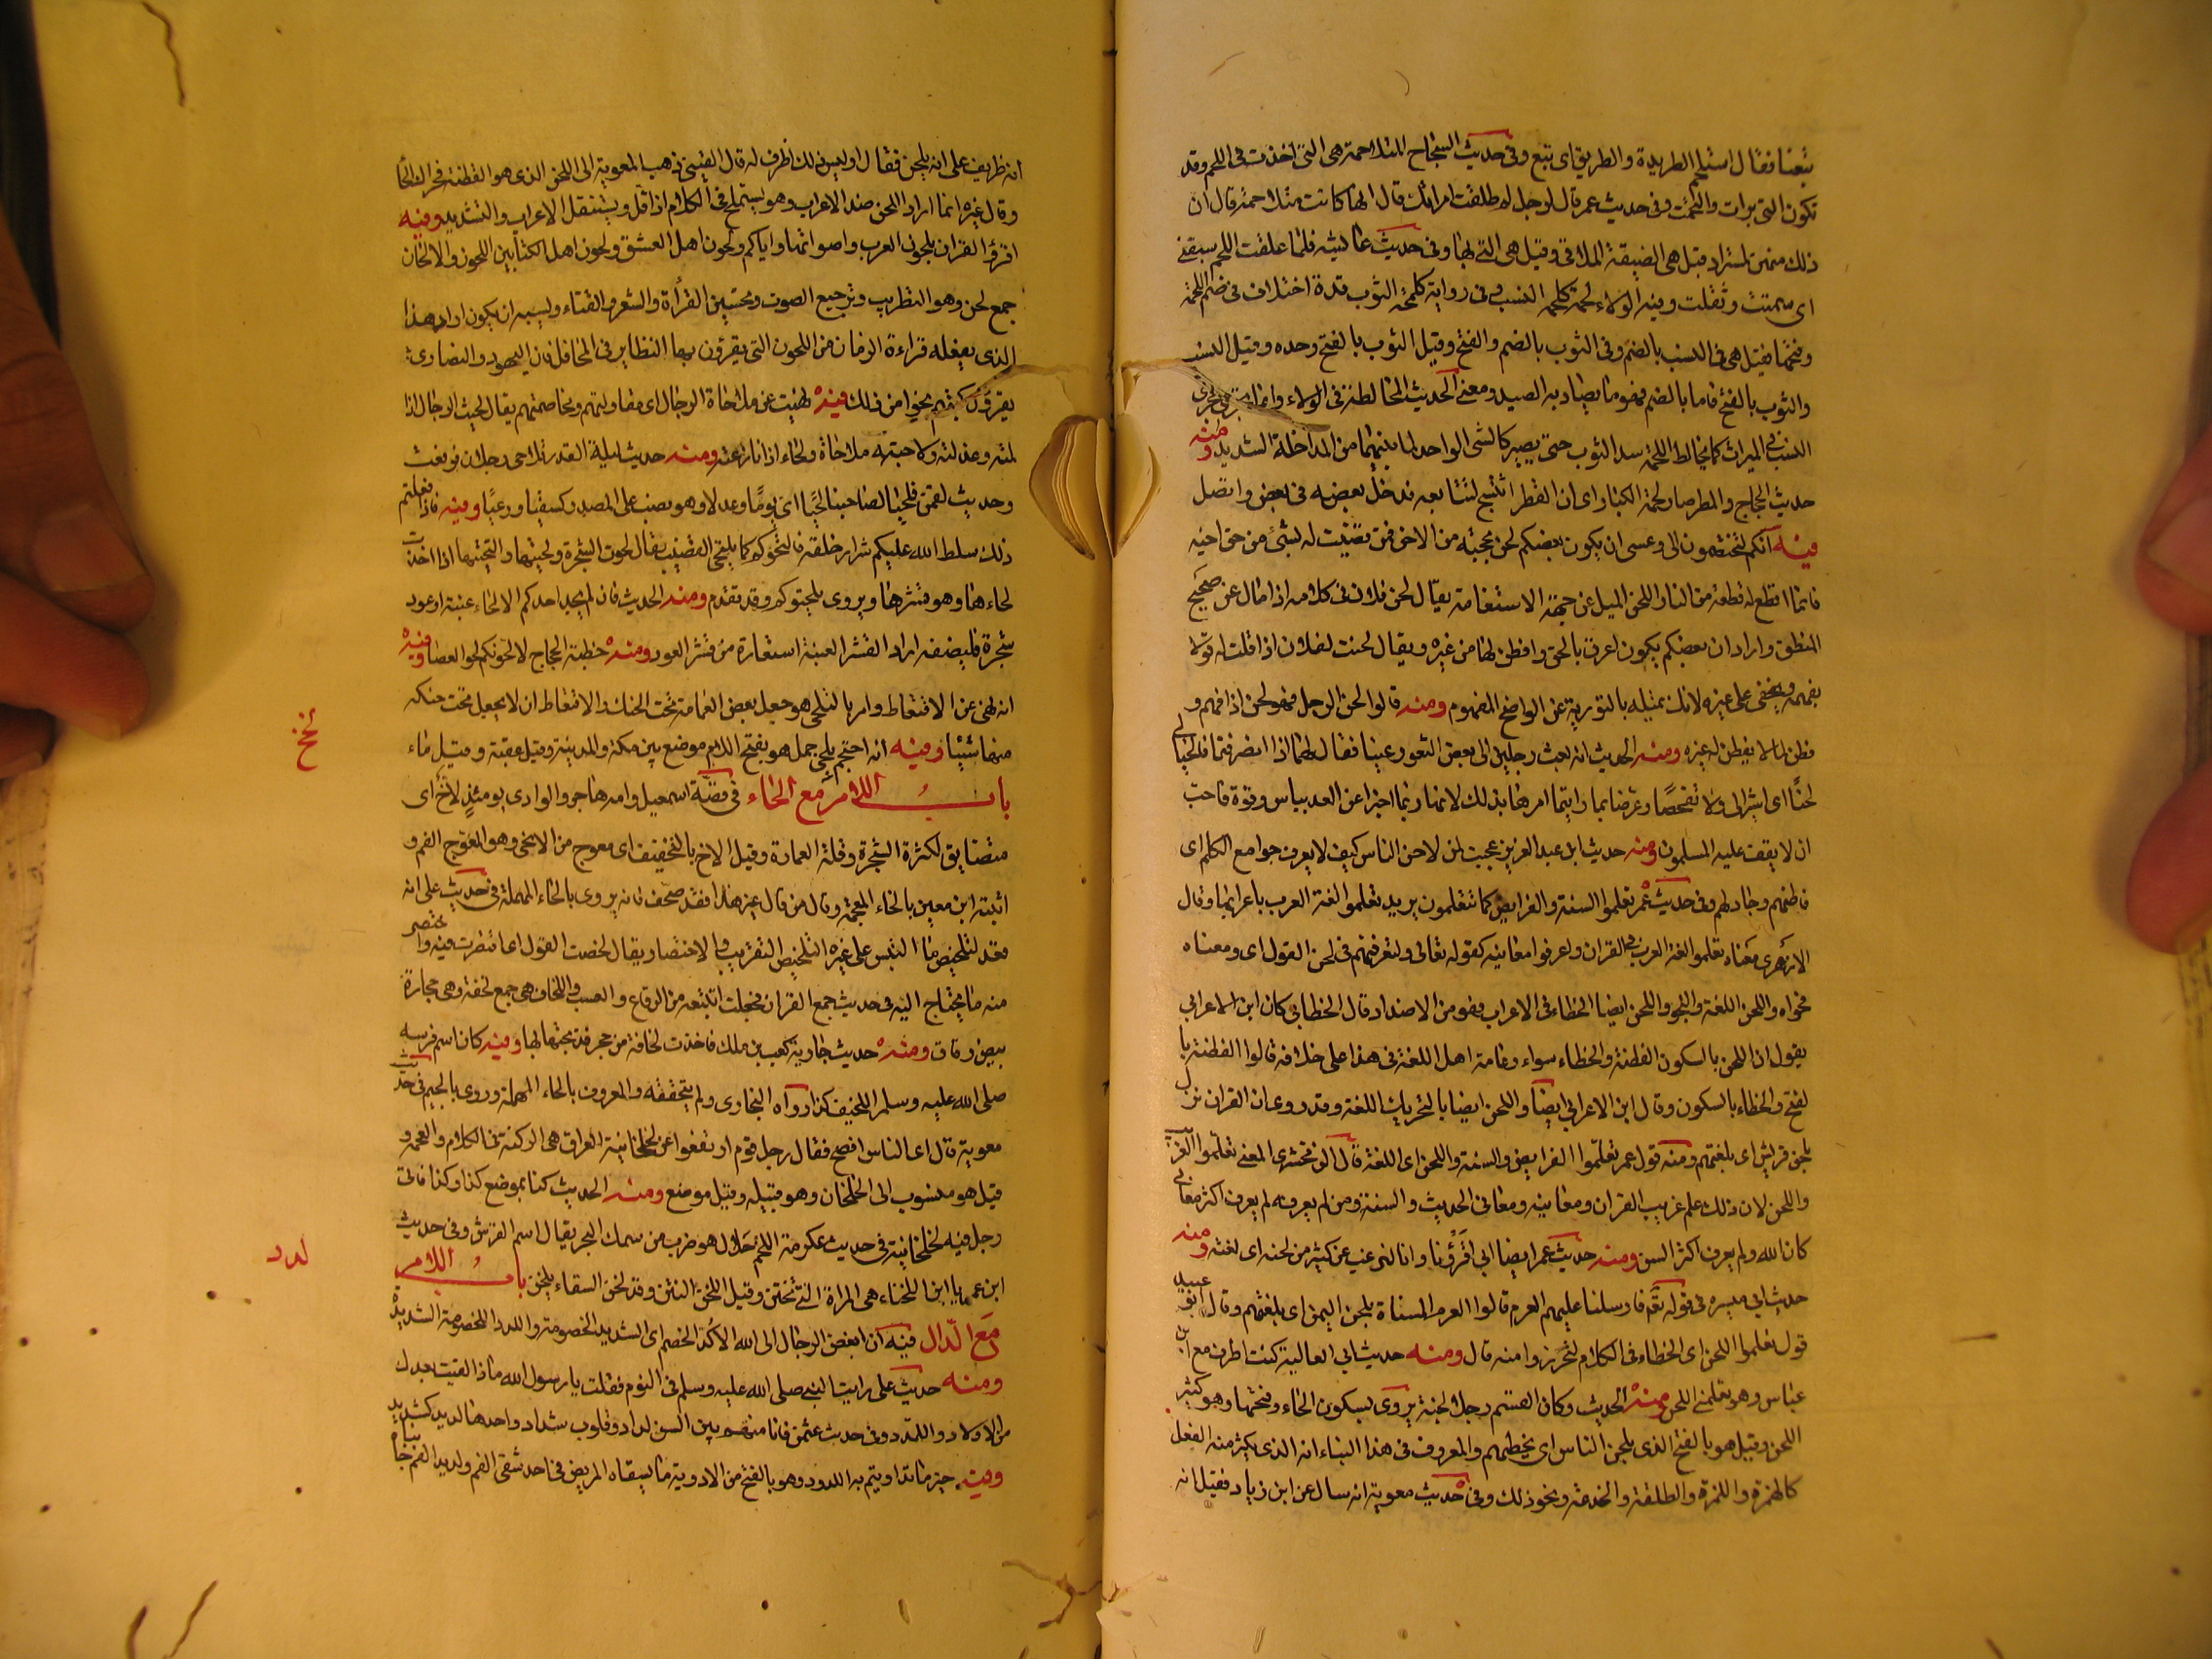 يتبعنا فقال استلحم الطريدة والطريق اى تبع وفى حديث الشجاج المتلاحمة هى التى اخذت فى اللحم وقد
تكون التى برات والتحمت وفى حديث عمر قال لرجل لم طلقت امرأتك قال انها كانت متلاحمة قال ان
ذلك منهن لمستراد قيل هى الضيقة الملاقى وقيل هى التى بها وفى حديث عائشة فلما علقت اللحم سبقنى
اى سمنت وثقلت وفيه الولاء لحمة كلحمة النسب وفى رواية كلحمة الثوب قد اختلف فى ضم اللحمة
وفتحها فقيل هى فى النسب بالضم وفى الثوب بالضم والفتح وقيل الثوب بالفتح وحده وقيل النسب
والثوب بالفتح فاما بالضم فهو ما يصاد به الصيد ومعنى الحديث المخالطة فى الولاء وانما تجرى مجرى
النسب فى الميراث كما يخالط اللحمة سدا الثوب حتى يصير كالشى الواحد لما بينهما من المداخلة الشديدة ومنه
حديث الحجاج والمطر صار لحمة الكبار اى ان القطر انتسج لتتابعه فدخل بعضه فى بعض واتصل
فيه انكم لتختصمون الى وعسى ان يكون بعضكم الحن بحجته من الاخر فمن قضيت له بشئ من حق اخيه
فانما اقطع له قطعة من النار اللحن الميل عن جهة الاستقامة يقال لحن فلان فى كلامه اذا مال عن صحيح
المنطق واراد ان بعضكم يكون اعرف بالحجة وافطن لها من غيره ويقال لحنت لفلان اذا قلت له قولا
يفهمه ويخفى على غيره لانك تميله بالتورية عن الواضح المفهوم ومنه قالوا لحن الرجل فهو لحن اذا فهم و
فطن لما لا يفطن له غيره ومنه الحديث انه بعث رجلين الى بعض الثغور عينا فقال لهما اذا انصرفتما فالحنا لى
لحنا اى اشيرا الى ولا تفصحا وعرضا بما رايتما امرهما بذلك لانهما ربما اخبرا عن العدو بباس وقوة فاحب
ان لا يقف عليه المسلمون ومنه حديث ابن عبد العزيز عجبت لمن لاحن الناس كيف لا يعرف جوامع الكلم اى
فاطنهم وجادلهم وفى حديث عمر تعلموا السنة والفرايض كما تتعلمون يريد تعلموا لغة العرب باعرابها وقال
الازهرى معناه تعلموا لغة العرب فى القران واعرفوا معانيه كقوله تعالى ولتعرفنهم فى لحن القول اى ومعناه
فحواه واللحن اللغة والنحو واللحن ايضا الخطاء فى الاعراب فهو من الاضداد قال الخطابى كان ابن الاعرابى
يقول ان اللحن بالسكون الفطنة والخطاء سواء وعامة اهل اللغة فى هذا على خلافه قالوا الفطنة با
لفتح والخطاء بالسكون وقال ابن الاعرابى ايضا واللحن ايضا بالتحريك اللغة وقد روى ان القران نزل
بلحن قريش اى بلغتهم ومنه قول عمر تعلموا الفرايض والسنة واللحن اى اللغة قال الزمخشرى المعنى تعلموا الغريب
واللحن لان ذلك علم غريب القران ومعانيه ومعانى الحديث والسنة ومن لم يعرفه لم يعرف اكثر معانى
كتاب الله ولم يعرف اكثر السنن ومنه حديث عمر ايضا ابى اقرؤنا وانا لنرغب عن كثير من لحنه اى لغته ومنه
حديث ابى ميسرة فى قوله تعالى فارسلنا عليهم العرم قالوا العرم المسناة بلحن اليمن اى بلغتهم وقال ابو عبيد
قول تعلموا اللحن اى الخطاء فى الكلام لتحرزوا منه قال ومنه حديث ابى العالية كنت اطوف مع ابن
عباس وهو يعلمنى اللحن ومنه الحديث وكان القسم رجلا لحنة يروى بسكون الحاء وفتحها وهو كثير
اللحن وقيل هو بالفتح الذى يلحن الناس اى يخطئهم والمعروف فى هذا البناء انه الذى يكثر منه الفعل
كالهمزة واللمزة والطلقة والخدعة ونحو ذلك وفى حديث معوية انه سال عن ابن زياد فقيل انه
انه ظريف على انه يلحن فقال اوليس ذلك اظرف له قال القتيبى ذهب معوية الى اللحن الذى هو الفطنة محرك الحا
وقال غيره انما اراد اللحن ضد الاعراب وهو يستملح فى الكلام اذا قل ويستثقل الاعراب والتشديد وفيه
اقرؤا القران بلحون العرب واصواتها واياكم ولحون اهل العشق ولحون اهل الكتابين اللحون والالحان
جمع لحن وهو التطريب وترجيع الصوت وتحسين القرأة والشعر والغناء ويشبه ان يكون اراد هذا
الذى يفعله قراءة الزمان من اللحون التى يقرؤن بها النظاير فى المحافل فان اليهود والنصارى
يقرؤن كتبهم نحوا من ذلك فيه نهيت عن ملاحاة الرجال اى مقاولتهم ومخاصمتهم يقال لحيت الرجال اذا
لمته وعذلته ولاحيته ملاحاة ولحاء اذا نازعته ومنه حديث ليلة القدر تلاحى رجلان فرفعت
وحديث لقمن فلحيا لصاحبنا لحيا اى لوما وعذلا وهو نصب على المصدر كسقيا ورعيا وفيه فاذا فعلتم
ذلك سلط الله عليكم شرار خلقه فالتحوكم كما يلتحى القضيب يقال لحوت الشجرة ولحيتها والتحيتها اذا اخذت
لحاءها وهو قشرها ويروى يلحتوكم وقد تقدم ومنه الحديث فان لم يجد احدكم الا لحاء عنبة او عود
شجرة فليمضغه اراد القشر العنبة استعارة من قشر العود ومنه خطبة الحجاج لالحونكم لحو العصا وفيه
انه نهى عن الاقتعاط وامر بالتلحى هو جعل بعض العمامة تحت الحنك والاقتعاط ان لا يجعل تحت حنكه
منها شيئا وفيه انه احتجم بلحى جمل هو بفتح اللام موضع بين مكة والمدينة وقيل عقبة وقيل ماء
نخخ
باب اللام مع الخاء فى قصة اسمعيل وامه هاجر والوادى يومئذ لاخ اى
متضايق لكثرة الشجرة وقلة العمارة وقيل الاخ بالتخفيف اى معوج من الالخى وهو المعوج الفم و
اثبته ابن معين بالخاء المعجمة وقال من قال غير هذا فقد صحف فانه يروى بالحاء المهملة فى حديث على انه
قعد لتلخيص ما التبس على غيره التلخيص التقريب والاختصار يقال لخصت القول اى اقتصرت فيه واختصر
منه ما يحتاج اليه فى حديث جمع القران فجعلت اتتبعه من الرقاع والعسب واللخاف هى جمع لخفة وهى حجارة
بيض رقاق ومنه حديث جارية كعب بن ملك فاخذت لخافة من حجر فذبحتها بها وفيه كان اسم فرسه
صلى الله عليه وسلم اللخيف كذا رواه البخارى ولم يتحققه والمعروف بالحاء المهملة وروى بالجيم فى حديث
معوية قال اى الناس افصح فقال رجل قوم ارتفعوا عن لخلخانية العراق هى اللكنة فى الكلام والعجمة و
قيل هو منسوب الى الخلخان وهو قبيلة وقيل موضع ومنه الحديث كنا بموضع كذا وكذا فاتى
رجل فيه لخلخانية فى حديث عكرمة اللخم حلال هو ضرب من سمك البحر يقال اسم القرش وفى حديث
ابن عمر يا ابن اللخناء هى المراة التى تختن وقيل اللخن النتن وقد لخن السقاء يلخن باب اللام
لدد
مع الدال فيه ان ابغض الرجال الى الله الالد الخصم اى الشديد الخصومة واللدد الخصومة الشديدة
ومنه حديث على رايت النبى صلى الله عليه وسلم فى النوم فقلت يا رسول الله ماذا لقيت بعدك
من الاولاد واللدد وفى حديث عثمن فانا منهم بين السن لداد وقلوب شداد واحدها لديد كشديد
وفيه خير ما تداويتم به اللدود وهو بالفتح من الادوية ما يسقاه المريض فى احد شقى الفم ولديدا الفم جانباه